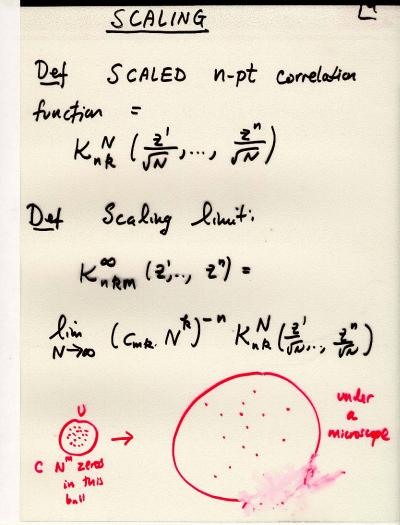 SCALING
Def SCALED n-pt correlation
function =
K^N_{nk} (z^1/√N, ..., z^n/√N)
Def Scaling limit:
K^∞_{nkm} (z^1, .., z^n) =
lim_{N→∞} (c_{mk} N^k)^{-n} K^N_{nk} (z^1/√N, .., z^n/√N)
U
→
C N^m zeros
in this
ball
under
a
microscope